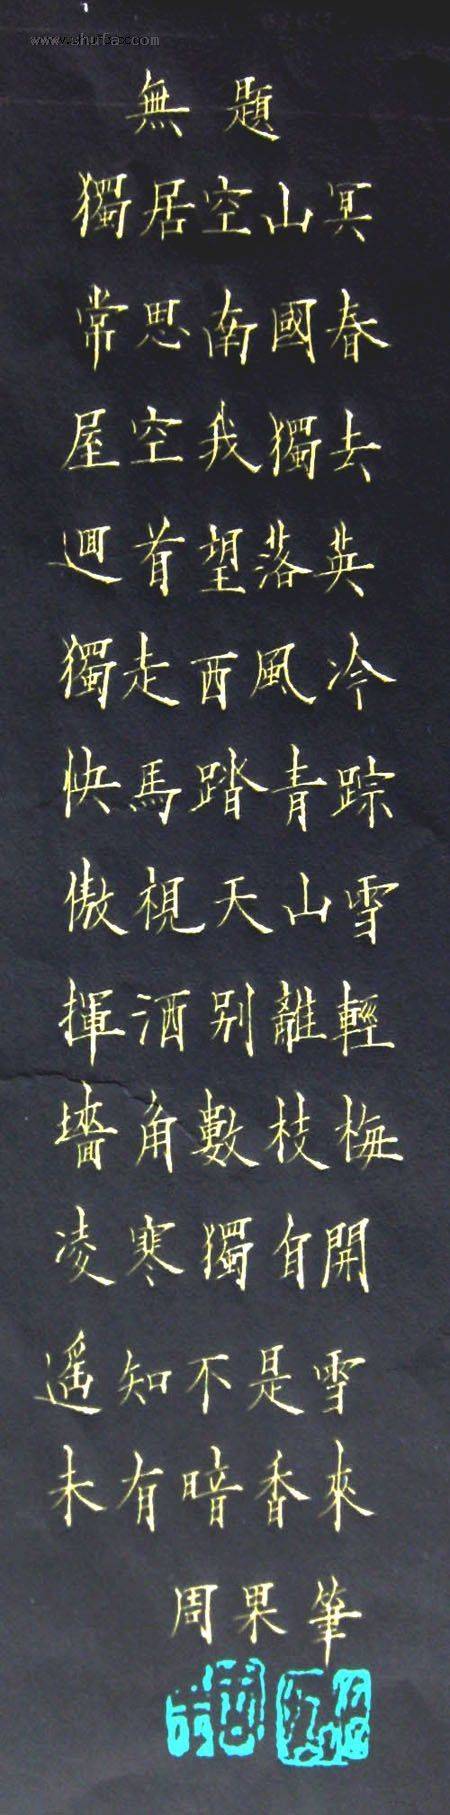 www.shufa.com
無題
獨居空山冥
常思南國春
屋空我獨去
迴首望落英
獨走西風冷
快馬踏青踪
傲視天山雪
揮酒别離輕
墻角數枝梅
凌寒獨自開
遥知不是雪
未有暗香來
周果筆